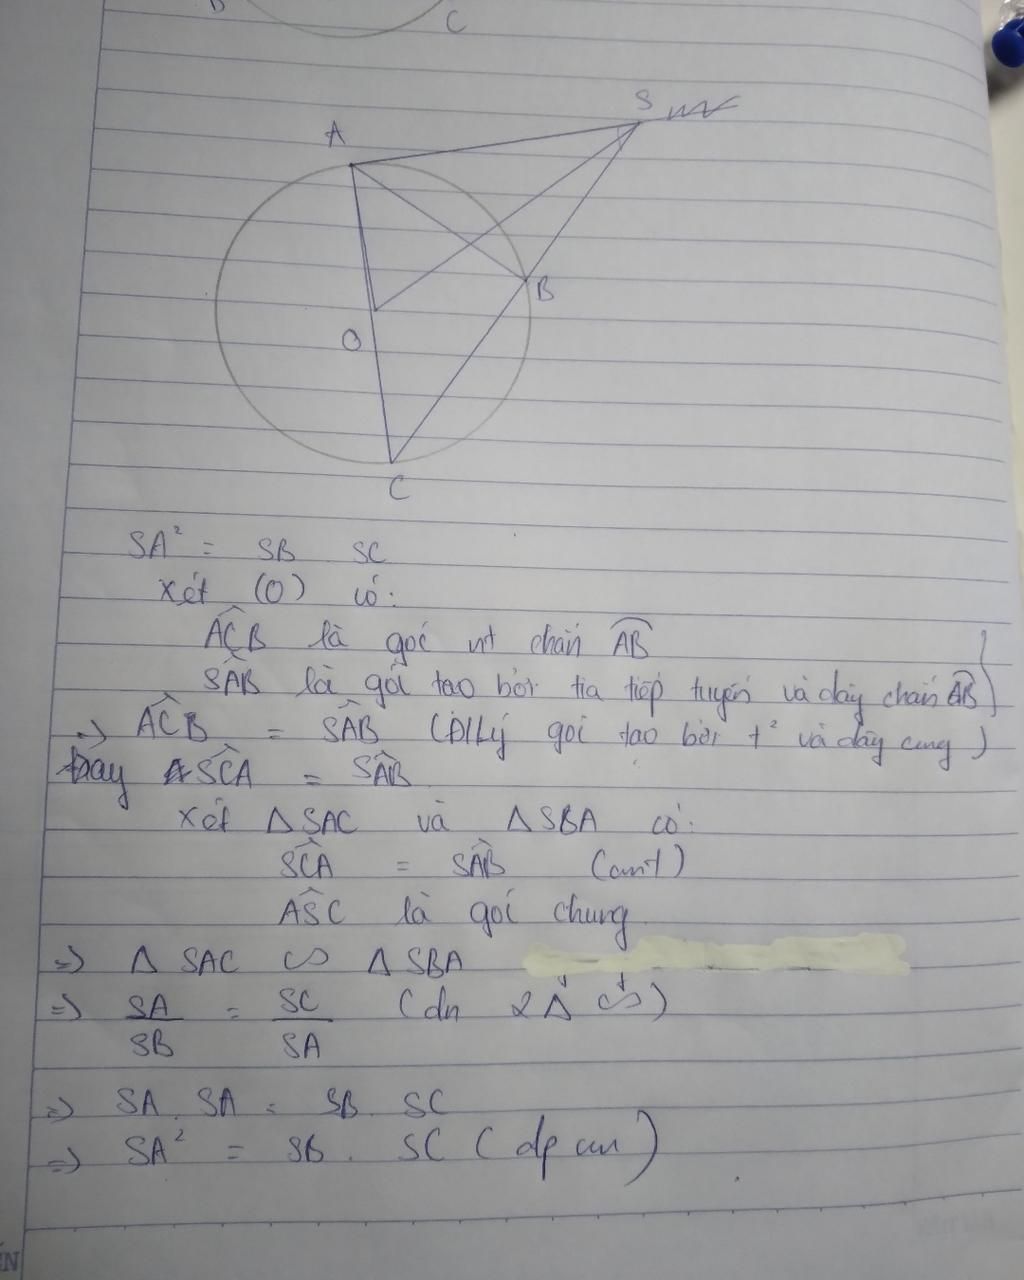 B
C
S
A
B
O
C
SA² = SB SC
Xét (O) có:
ACB là goć nt chắn AB
SAB là góc tạo bởi tia tiếp tuyến và dây chắn AB
=> ACB = SAB (Đ/Lý goć tạo bởi t² và dây cung)
hay SCA = SAB
Xét Δ SAC và Δ SBA có:
SCA = SAB (cmt)
ASC là goć chung
=> Δ SAC ∽ Δ SBA
=> SA/SB = SC/SA (dn 2Δ ∽)
=> SA . SA = SB . SC
=> SA² = SB . SC (đpcm)
ÊN